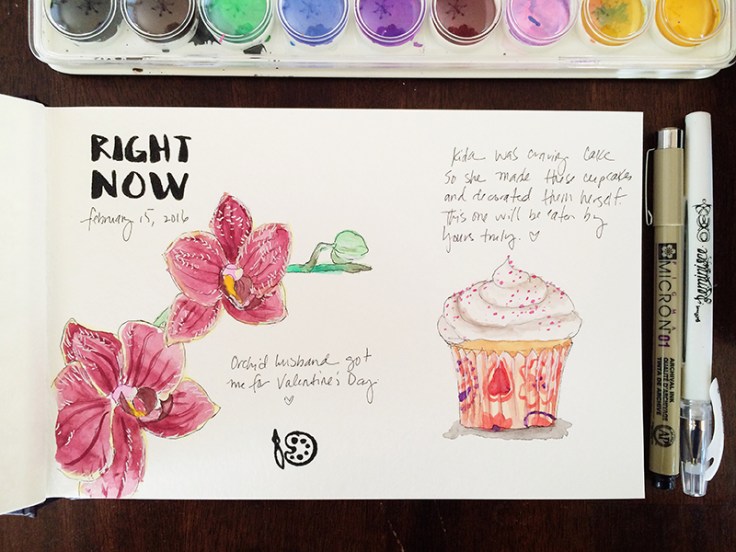 RIGHT
NOW
february 15, 2016
Orchid husband got
me for Valentine's Day
was craving cake
So she made these cupcakes
and decorated them herself.
This one will be eaten by
Yours truly.
MICRON 01
ARCHIVAL INK
reminisce